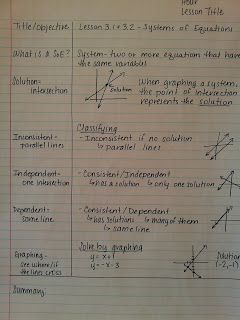 Hour
Lesson Title
Title/Objective
Lesson 3.1 + 3.2 - Systems of Equations
What is a SoE?
System - two or more equation that have
the same variables
Solution-
intersection
Solution
When graphing a system,
the point of intersection
represents the solution
Classifying
Inconsistent-
parallel lines
- Inconsistent if no solution
↳ parallel lines
Independent-
one intersection
- Consistent/Independent
↳ has a solution ↳ only one solution
Dependent-
same line
- Consistent/Dependent
↳ has solutions ↳ many of them
↳ same line
Graphing-
see where/if
the lines cross
Solve by graphing
y = x+1
y = -x-3
Solution
(-2,-1)
Summary: